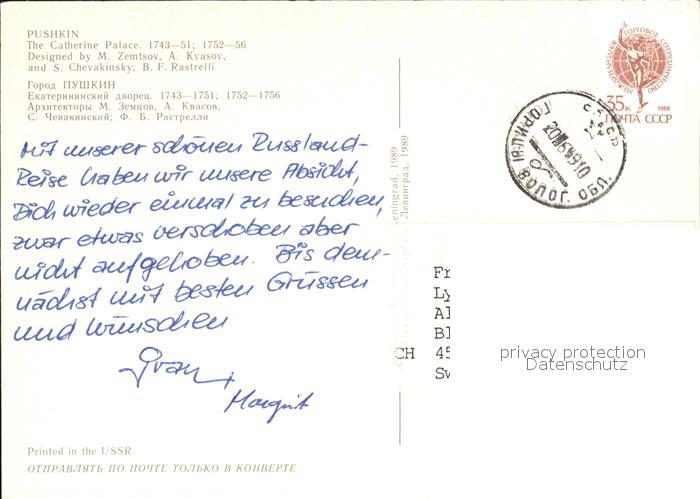 PUSHKIN
The Catherine Palace. 1743—51; 1752—56
Designed by M. Zemtsov, A. Kvasov,
and S. Chevakinsky; B. F. Rastrelli
Город ПУШКИН
Екатерининский дворец. 1743—1751; 1752—1756
Архитекторы М. Земцов, А. Квасов,
С. Чевакинский; Ф. Б. Растрелли
Mit unserer schönen Russland-
Reise haben wir unsere Absicht,
Dich wieder einmal zu besuchen,
zwar etwas verschoben aber
nicht aufgehoben. Bis dem-
nächst mit besten Grüssen
und Wünschen
Margrit
Printed in the USSR
ОТПРАВЛЯТЬ ПО ПОЧТЕ ТОЛЬКО В КОНВЕРТЕ
Leningrad, 1989
Ленинград, 1989
МЕЖДУНАРОДНОЕ ТОРГОВОЕ СОТРУДНИЧЕСТВО
35к 1988
ПОЧТА СССР
СССР
ВОЛОГ. ОБЛ.
Fr
Ly
Al
Bl
CH 45
Sw
privacy protection
Datenschutz